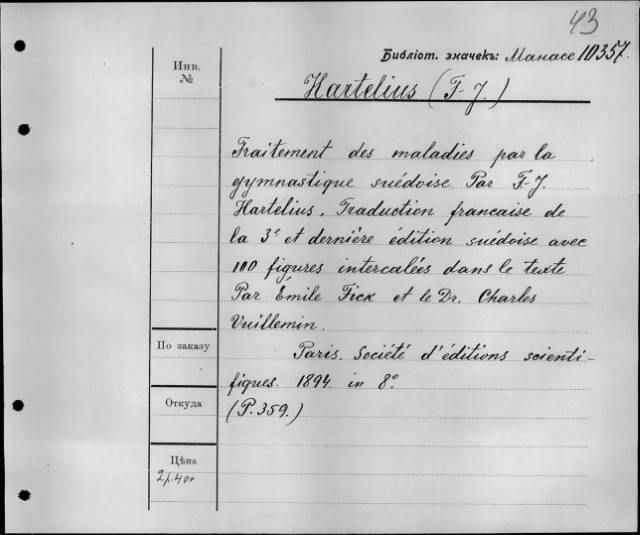 43
Библіот. значекъ: Манасс 10357.
Инв.
№
Hartelius (T-J.)
Traitement des maladies par la
gymnastique suédoise Par T-J.
Hartelius. Traduction francaise de
la 3e et dernière édition suédoise avec
100 figures intercalées dans le texte
Par Émile Fick et le Dr. Charles
Vuillemin.
Paris. Société d'éditions scienti-
fiques. 1894. in 8°.
(P. 359.)
По заказу
Откуда
Цѣна